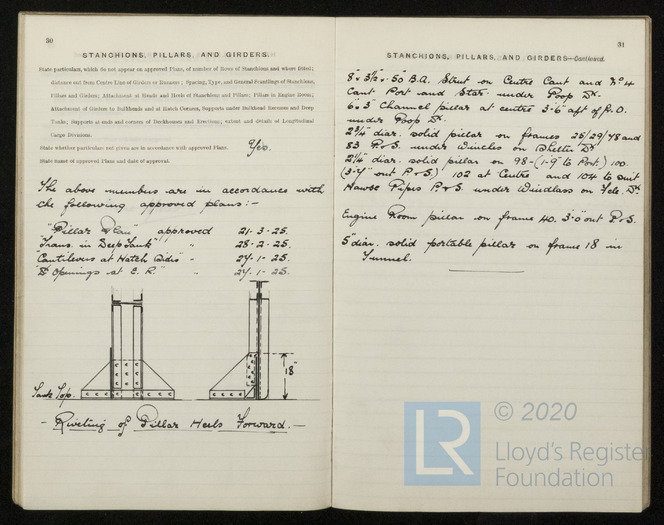 30
STANCHIONS, PILLARS, AND GIRDERS.
State particulars, which do not appear on approved Plans, of number of Rows of Stanchions and where fitted;
distance out from Centre Line of Girders or Runners; Spacing, Type, and General Scantlings of Stanchions,
Pillars and Girders; Attachment at Heads and Heels of Stanchions and Pillars; Pillars in Engine Room;
Attachment of Girders to Bulkheads and at Hatch Corners, Supports under Bulkhead Recesses and Deep
Tanks; Supports at ends and corners of Deckhouses and Erections; extent and details of Longitudinal
Cargo Divisions.
State whether particulars not given are in accordance with approved Plans. Yes.
State name of approved Plans and date of approval.
The above members are in accordance with
the following approved plans:-
"Pillar Plan" approved 21-3-25.
"Trans. in Deep Tank" " 28-2-25.
"Cantilevers at Hatch Ends" " 27-1-25.
"Dk Openings at E.R." " 27-1-25.
18"
Tank Top.
- Riveting of Pillar Heels Forward. -
31
STANCHIONS, PILLARS, AND GIRDERS—Continued.
8" x 3½" x .50 B.A. Strut on Centre Cant and No 4
Cant Port and Star. under Poop Dk.
6" x 3" Channel pillar at centre 3'-6" aft of R.O.
under Poop Dk.
2¾" diar. solid pillar on frames 25/29/78 and
83 P & S. under Winches on Shelter Dk
2¼" diar. solid pillar on 98-(1'-9" to Port.) 100.
(3'-4" out P & S.) 102 at Centre and 104 to suit
Hawse Pipes P & S under Windlass on Fcle. Dk
Engine Room pillar on frame 40. 3'-0" out P & S.
5" diar. solid portable pillar on frame 18 in
Tunnel.
LR
© 2020
Lloyd's Register
Foundation